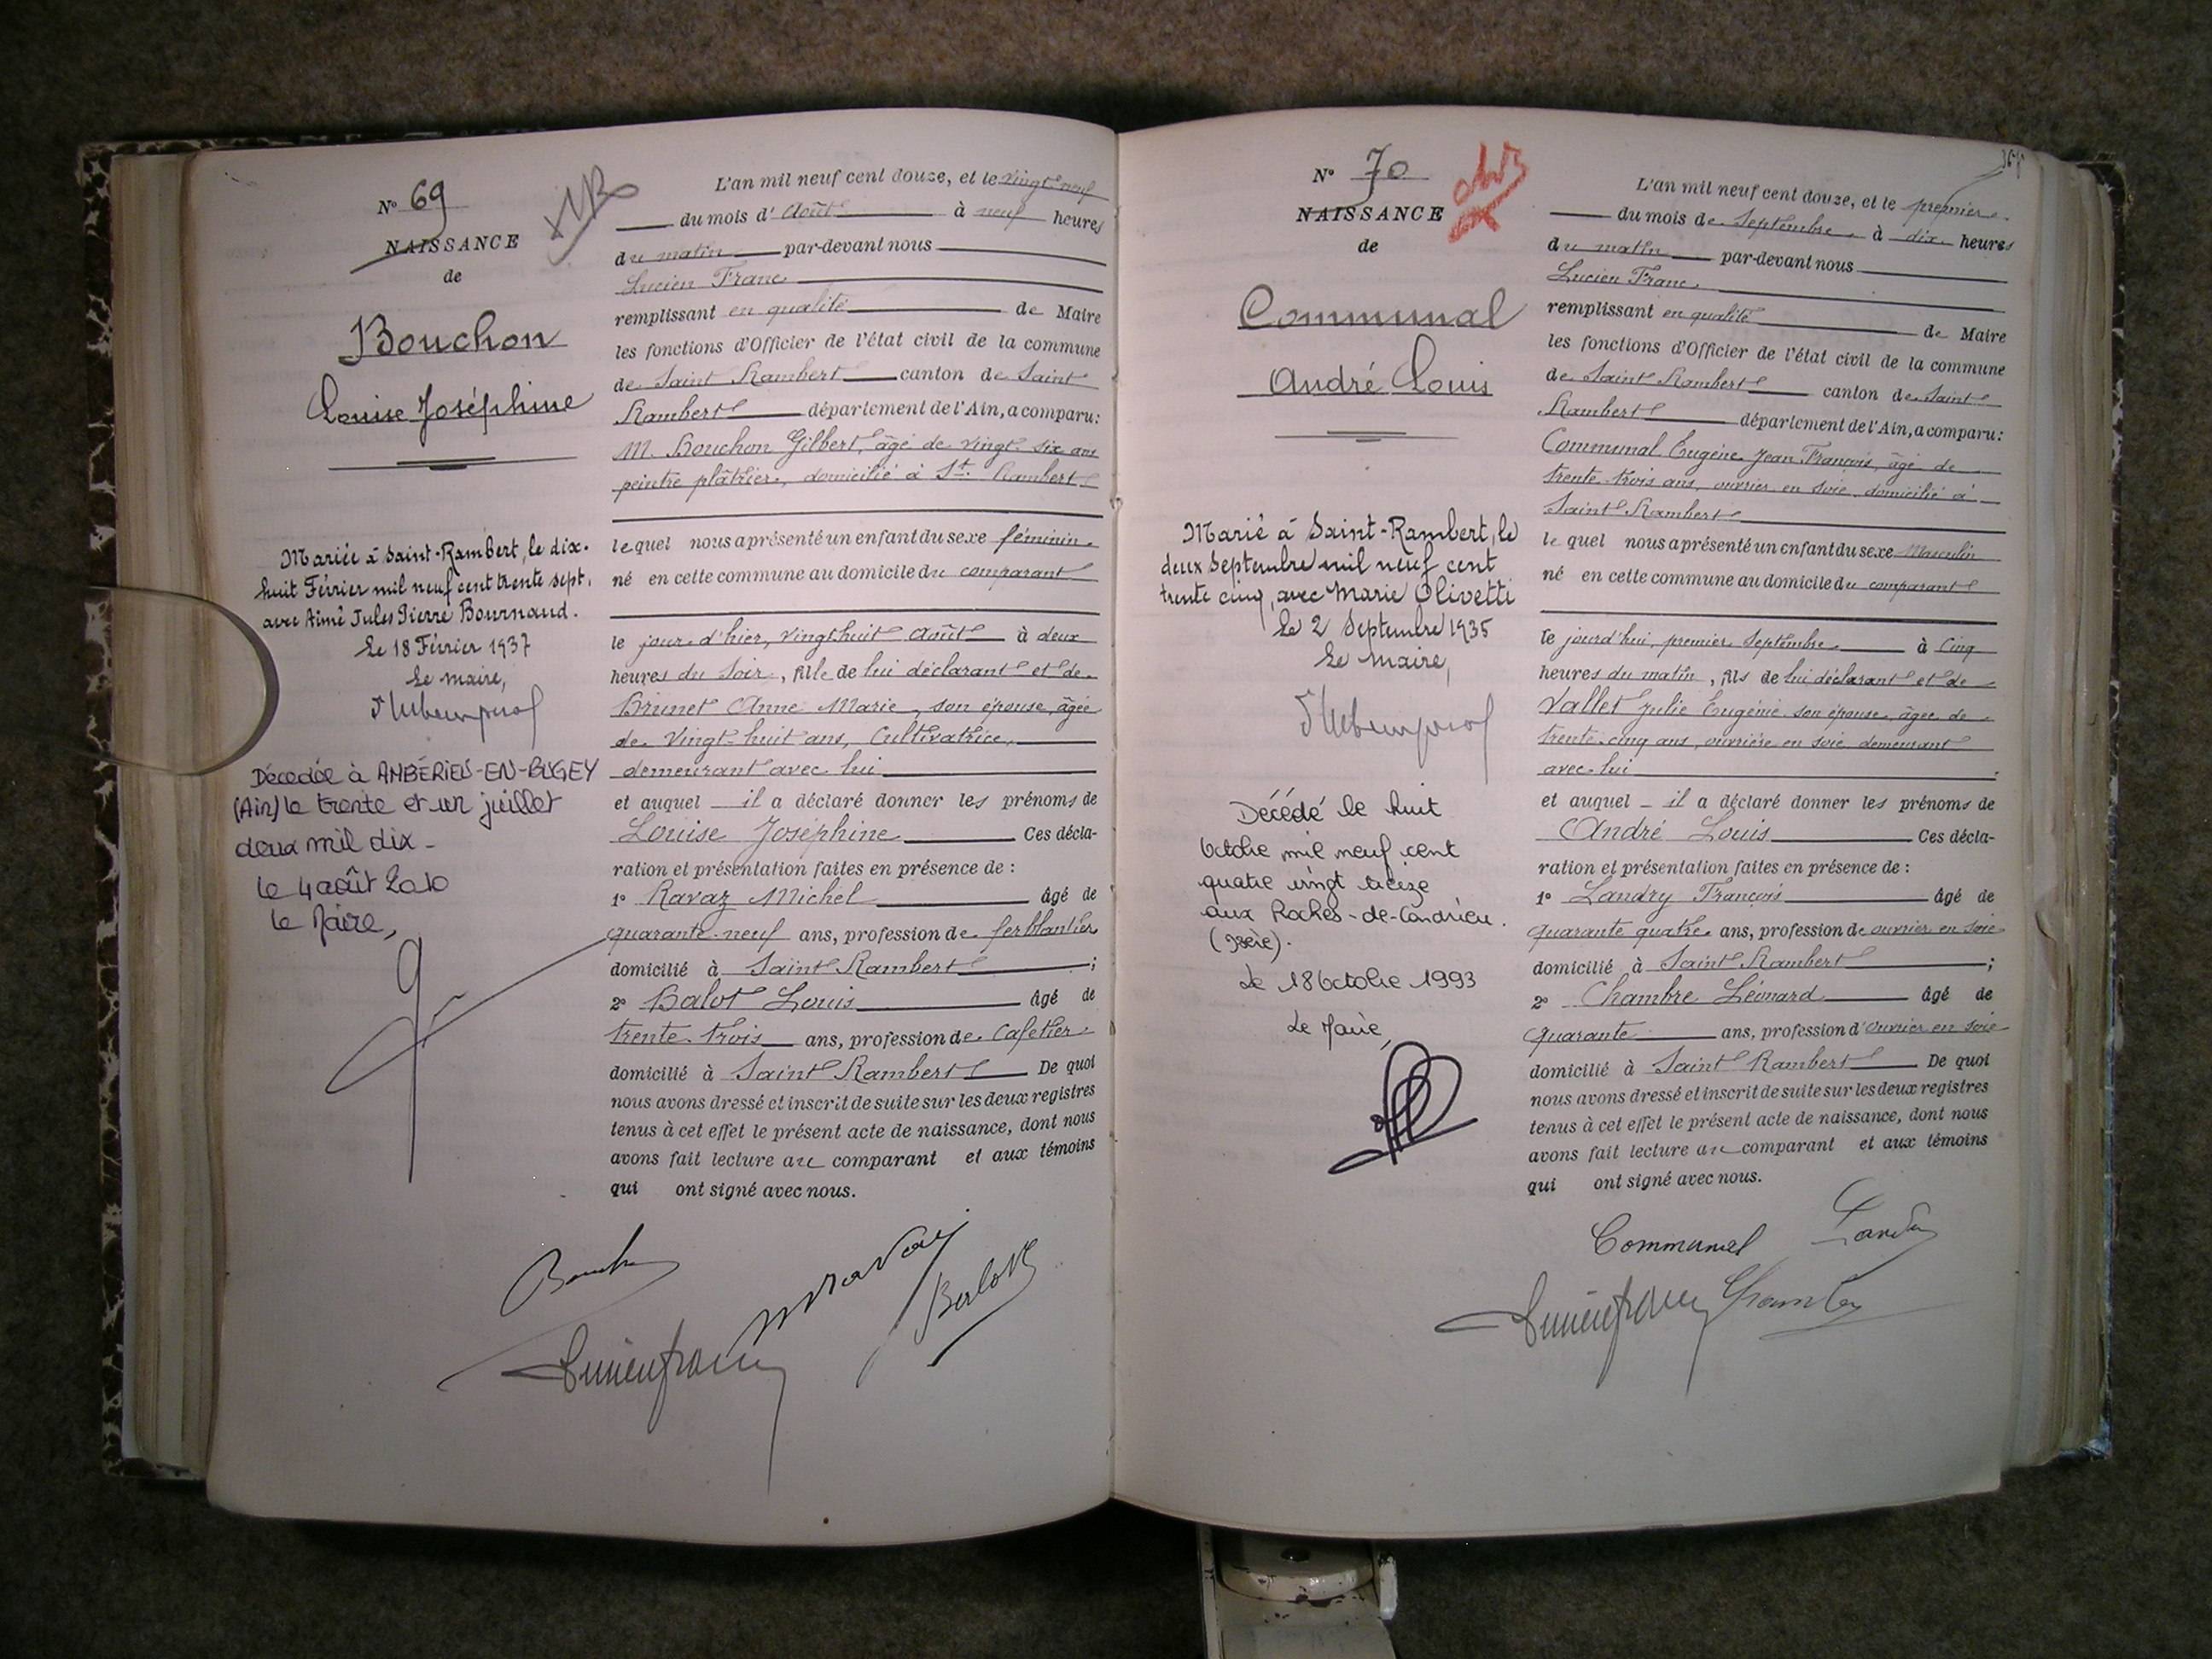 N° 69
NAISSANCE
de
Bouchon
Louise Joséphine
Mariée à Saint-Rambert, le dix-
huit Février mil neuf cent trente sept,
avec Aimé Jules Pierre Bournaud.
Le 18 Février 1937
Le maire,
Décédée à AMBÉRIEU-EN-BUGEY
(Ain) le trente et un juillet
deux mil dix -
Le 4 août 2010
Le Maire,
L'an mil neuf cent douze, et le vingt neuf
du mois d'Août à neuf heures
du matin par-devant nous
Lucien Franc
remplissant en qualité de Maire
les fonctions d'Officier de l'état civil de la commune
de Saint Rambert canton de Saint
Rambert département de l'Ain, a comparu:
M. Bouchon Gilbert, âgé de vingt six ans
peintre plâtrier, domicilié à St. Rambert
lequel nous a présenté un enfant du sexe féminin
né en cette commune au domicile du comparant
le jour d'hier, vingt huit Août à deux
heures du soir, fille de lui déclarant et de
Brunet Anne Marie, son épouse, âgée
de vingt-huit ans, Cultivatrice,
demeurant avec lui
et auquel il a déclaré donner les prénoms de
Louise Joséphine Ces décla-
ration et présentation faites en présence de :
1° Ravaz Michel âgé de
quarante-neuf ans, profession de ferblantier
domicilié à Saint Rambert ;
2° Balot Louis âgé de
trente-trois ans, profession de Cafetier
domicilié à Saint Rambert De quoi
nous avons dressé et inscrit de suite sur les deux registres
tenus à cet effet le présent acte de naissance, dont nous
avons fait lecture au comparant et aux témoins
qui ont signé avec nous.
N° 70
NAISSANCE
de
Communal
André Louis
Marié à Saint-Rambert, le
deux Septembre mil neuf cent
trente cinq, avec Marie Olivetti
Le 2 Septembre 1935
Le maire,
Décédé le huit
Octobre mil neuf cent
quatre vingt treize
aux Roches-de-Condrieu.
(Isère).
Le 18 Octobre 1993
Le Maire,
L'an mil neuf cent douze, et le premier
du mois de Septembre à dix heures
du matin par-devant nous
Lucien Franc
remplissant en qualité de Maire
les fonctions d'Officier de l'état civil de la commune
de Saint Rambert canton de Saint
Rambert département de l'Ain, a comparu:
Communal Eugène Jean François, âgé de
trente-trois ans, ouvrier en soie, domicilié à
Saint Rambert
lequel nous a présenté un enfant du sexe Masculin
né en cette commune au domicile du comparant
le jourd'hui, premier Septembre à cinq
heures du matin, fils de lui déclarant et de
Vallet Julie Eugénie son épouse, âgée de
trente-cinq ans, ouvrière en soie demeurant
avec lui
et auquel il a déclaré donner les prénoms de
André Louis Ces décla-
ration et présentation faites en présence de :
1° Landry François âgé de
quarante quatre ans, profession de ouvrier en soie
domicilié à Saint Rambert ;
2° Chambre Léonard âgé de
quarante ans, profession d'ouvrier en soie
domicilié à Saint Rambert De quoi
nous avons dressé et inscrit de suite sur les deux registres
tenus à cet effet le présent acte de naissance, dont nous
avons fait lecture au comparant et aux témoins
qui ont signé avec nous.
Communal